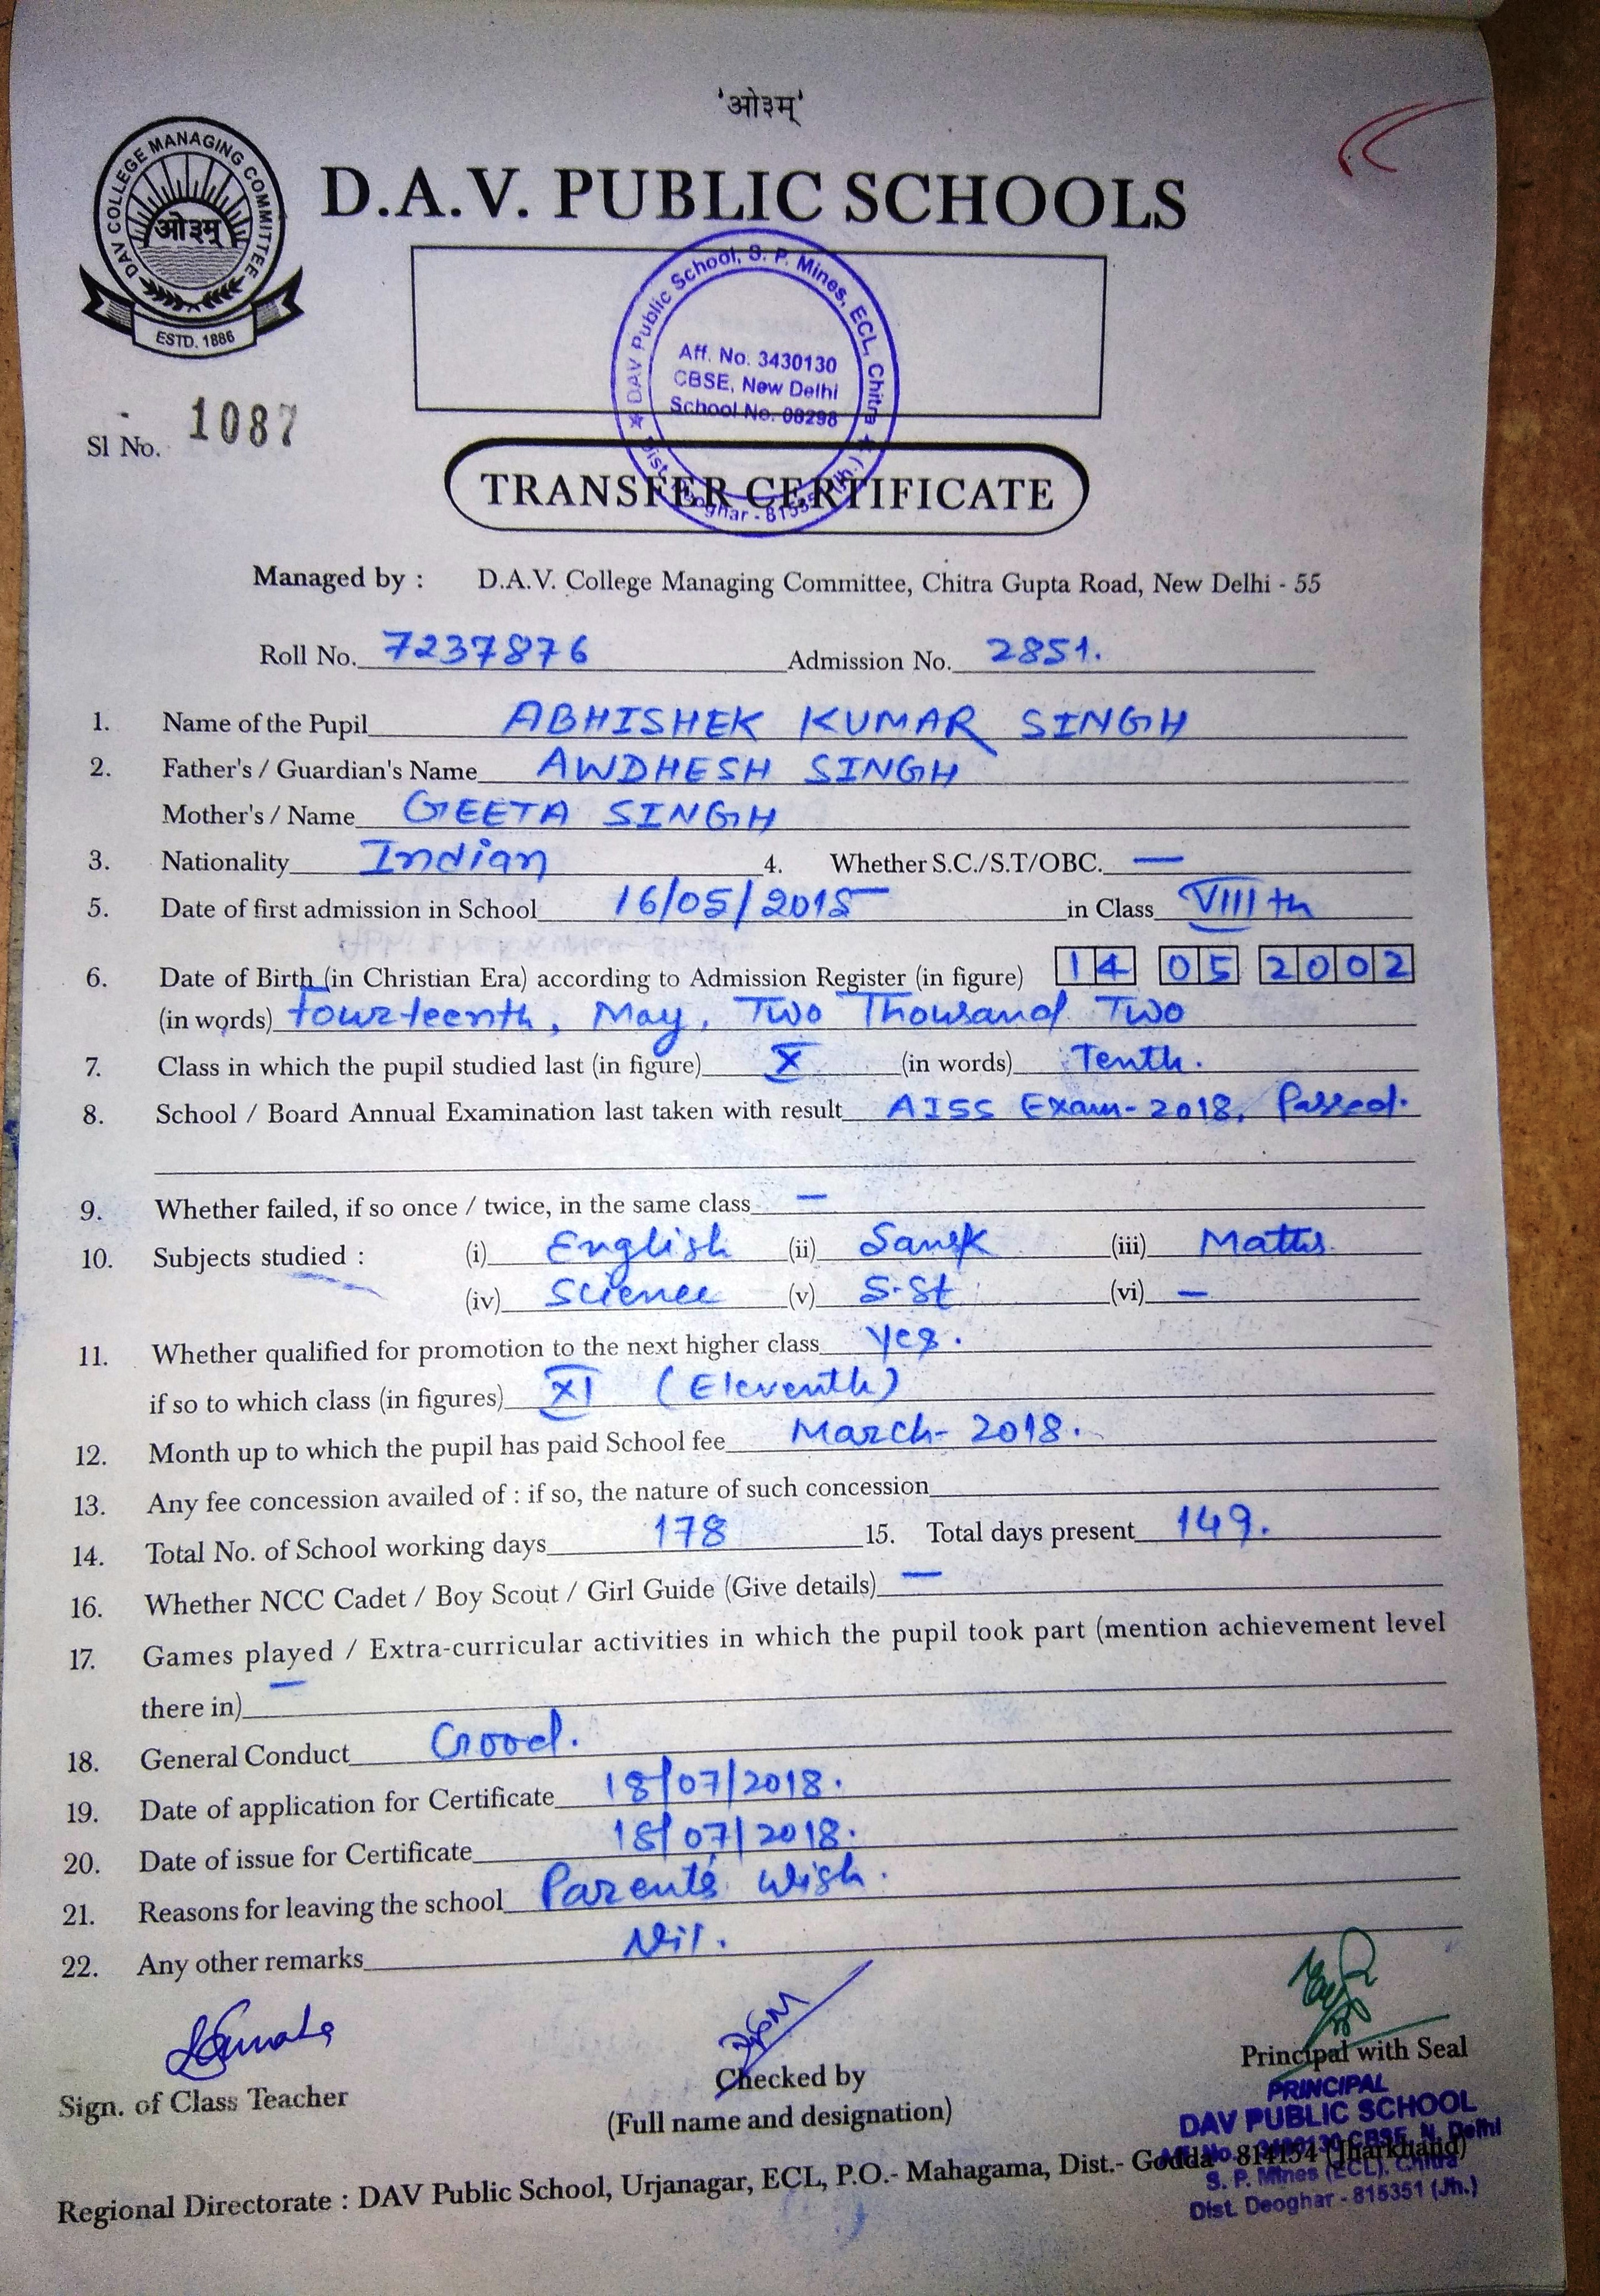 'ओ३म्'
DAV COLLEGE MANAGING COMMITTEE
ओ३म्
ESTD. 1886
D.A.V. PUBLIC SCHOOLS
DAV Public School, S. P. Mines, ECL, Chitra
Aff. No. 3430130
CBSE, New Delhi
School No. 08298
Sl No. 1087
TRANSFER CERTIFICATE
Managed by : D.A.V. College Managing Committee, Chitra Gupta Road, New Delhi - 55
Roll No. 7237876 Admission No. 2851.
1. Name of the Pupil ABHISHEK KUMAR SINGH
2. Father's / Guardian's Name AWDHESH SINGH
Mother's / Name GEETA SINGH
3. Nationality Indian 4. Whether S.C./S.T/OBC. —
5. Date of first admission in School 16/05/2015 in Class VIIIth
6. Date of Birth (in Christian Era) according to Admission Register (in figure) 14 05 2002
(in words) fourteenth, May, Two Thousand Two
7. Class in which the pupil studied last (in figure) X (in words) Tenth.
8. School / Board Annual Examination last taken with result AISS Exam-2018, Passed.
9. Whether failed, if so once / twice, in the same class —
10. Subjects studied : (i) English (ii) Sansk (iii) Maths
(iv) Science (v) S.St (vi) —
11. Whether qualified for promotion to the next higher class yes.
if so to which class (in figures) XI (Eleventh)
12. Month up to which the pupil has paid School fee March-2018.
13. Any fee concession availed of : if so, the nature of such concession
14. Total No. of School working days 178 15. Total days present 149.
16. Whether NCC Cadet / Boy Scout / Girl Guide (Give details) —
17. Games played / Extra-curricular activities in which the pupil took part (mention achievement level
there in) —
18. General Conduct Good.
19. Date of application for Certificate 18/07/2018.
20. Date of issue for Certificate 18/07/2018.
21. Reasons for leaving the school Parent's wish.
22. Any other remarks Nil.
Sign. of Class Teacher
Checked by
(Full name and designation)
Principal with Seal
PRINCIPAL
DAV PUBLIC SCHOOL
Regional Directorate : DAV Public School, Urjanagar, ECL, P.O.- Mahagama, Dist.- Godda - 814154 (Jharkhand)
S. P. Mines (ECL), Chitra
Dist. Deoghar - 815351 (Jh.)